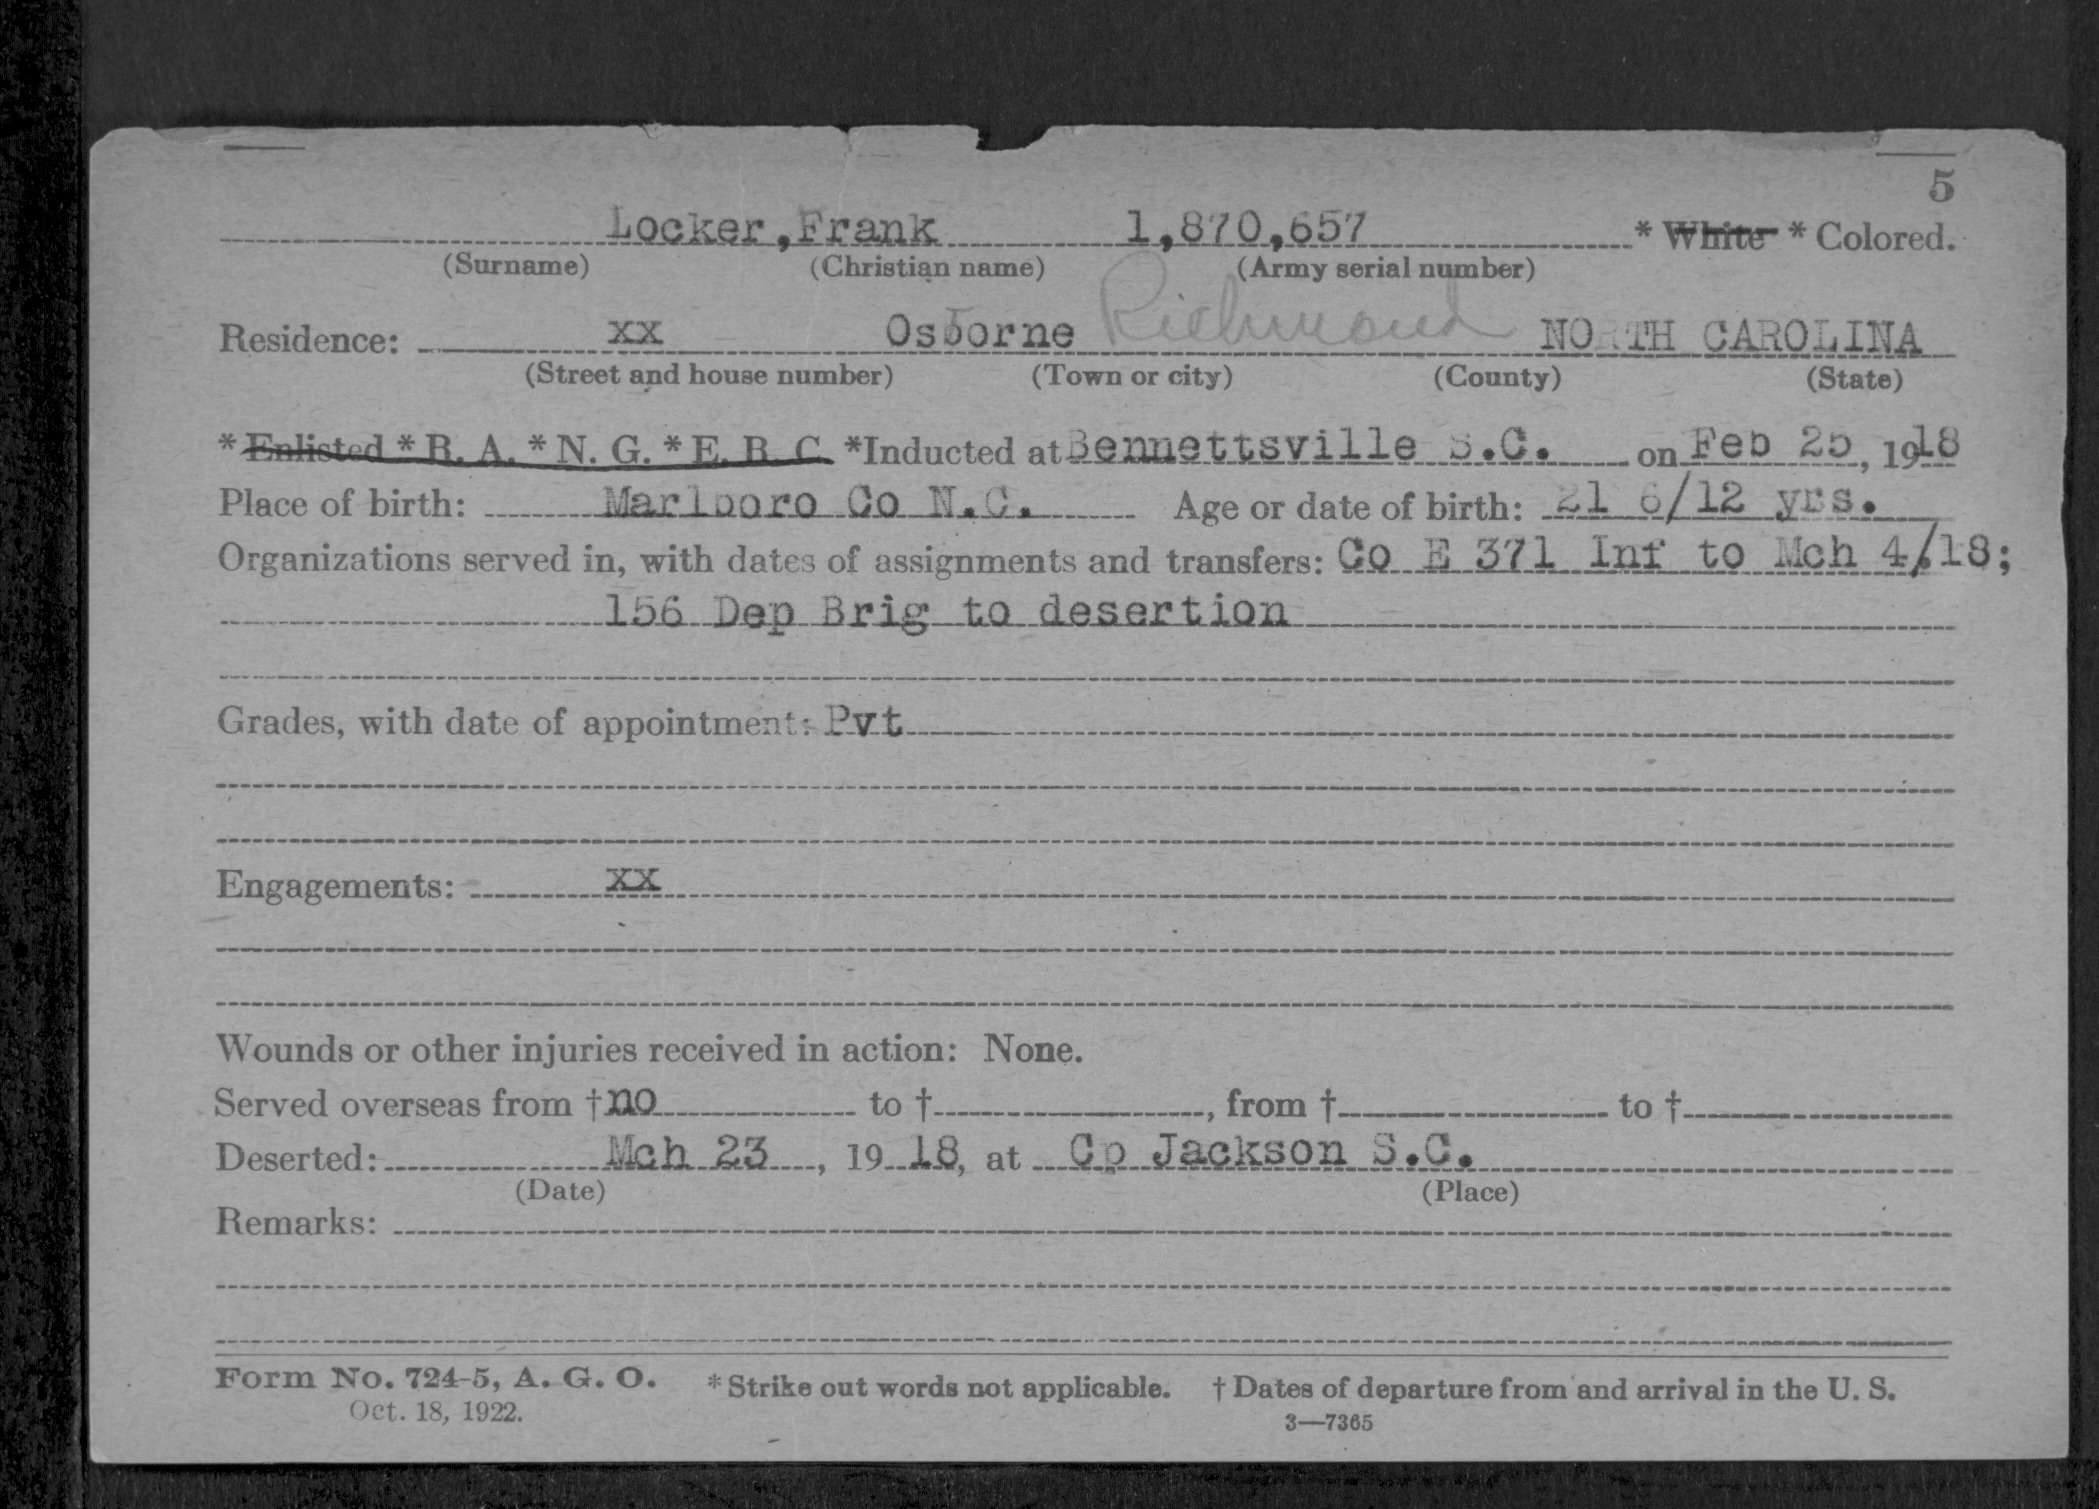 5
Locker,Frank 1,870,657 * White * Colored.
(Surname) (Christian name) (Army serial number)
Residence: xx Osborne Richmond NORTH CAROLINA
(Street and house number) (Town or city) (County) (State)
* Enlisted * R. A. * N. G. * E. R. C. *Inducted at Bennettsville S.C. on Feb 25, 1918
Place of birth: Marlboro Co N.C. Age or date of birth: 21 6/12 yrs.
Organizations served in, with dates of assignments and transfers: Co E 371 Inf to Mch 4/18;
156 Dep Brig to desertion
Grades, with date of appointment: Pvt
Engagements: xx
Wounds or other injuries received in action: None.
Served overseas from †no to †, from † to †
Deserted: Mch 23, 1918, at Cp Jackson S.C.
(Date) (Place)
Remarks:
Form No. 724-5, A. G. O. * Strike out words not applicable. † Dates of departure from and arrival in the U. S.
Oct. 18, 1922. 3—7365